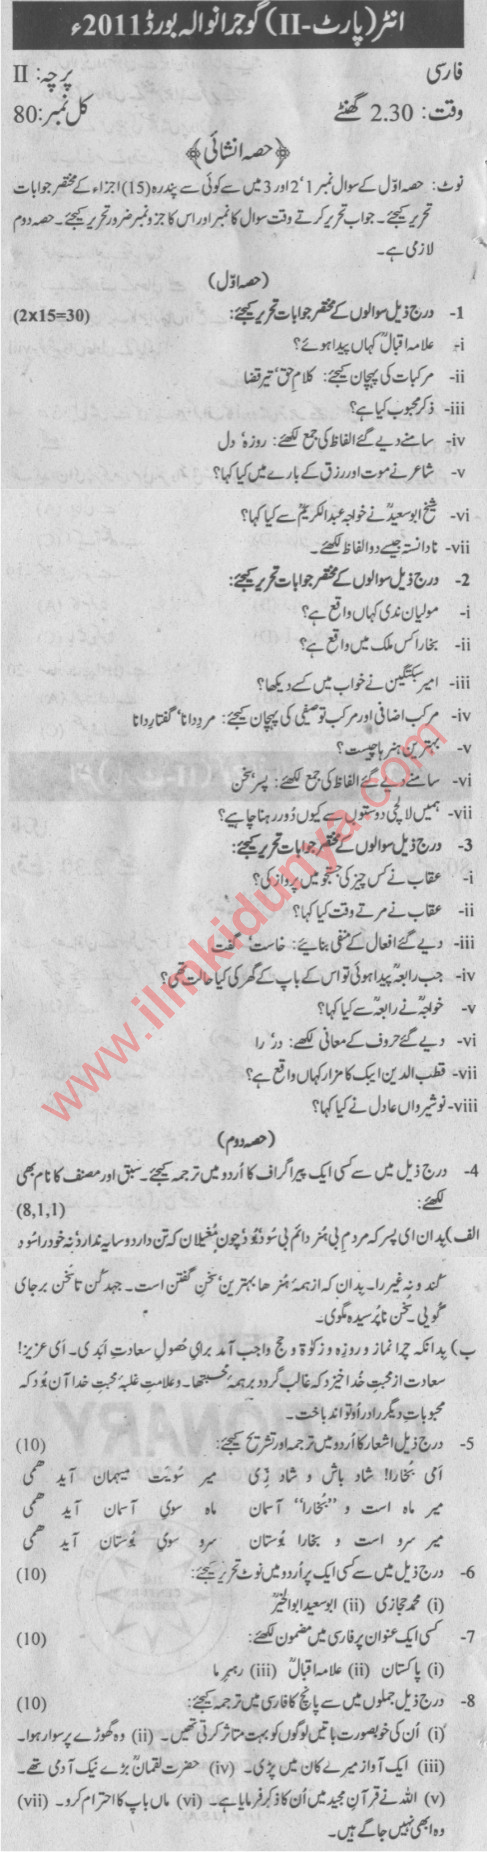 انٹر (پارٹ-II) گوجرانوالہ بورڈ 2011ء
فارسی پرچہ: II
وقت: 2.30 گھنٹے کل نمبر: 80
﴿حصہ انشائی﴾
نوٹ: حصہ اوّل کے سوال نمبر 1' 2 اور 3 میں سے کوئی سے پندرہ (15) اجزاء کے مختصر جوابات
تحریر کیجئے۔ جواب تحریر کرتے وقت سوال کا نمبر اور اس کا جزو نمبر ضرور تحریر کیجئے۔ حصہ دوم
لازمی ہے۔
(حصہ اوّل)
1- درج ذیل سوالوں کے مختصر جوابات تحریر کیجئے: (2x15=30)
i- علامہ اقبالؒ کہاں پیدا ہوئے؟
ii- مرکبات کی پہچان کیجئے: کلامِ حق' تیر قضا
iii- ذکر محبوب کیا ہے؟
iv- سامنے دیے گئے الفاظ کی جمع لکھئے: روزہ' دل
v- شاعر نے موت اور رزق کے بارے میں کیا کہا؟
vi- شیخ ابو سعیدؒ نے خواجہ عبدالکریمؒ سے کیا کہا؟
vii- نادانستہ جیسے دو الفاظ لکھئے۔
2- درج ذیل سوالوں کے مختصر جوابات تحریر کیجئے:
i- مولیان ندی کہاں واقع ہے؟
ii- بخارا کس ملک میں واقع ہے؟
iii- امیر سبکتگین نے خواب میں کسے دیکھا؟
iv- مرکب اضافی اور مرکب توصیفی کی پہچان کیجئے: مردِ دانا' گفتارِ دانا
v- بہترین ہنرہا چیست؟
vi- سامنے دیے گئے الفاظ کی جمع لکھئے: پسر' سخن
vii- ہمیں لالچی دوستوں سے کیوں دُور رہنا چاہیے؟
3- درج ذیل سوالوں کے مختصر جوابات تحریر کیجئے:
i- عقاب نے کس چیز کی جستجو میں پرواز کی؟
ii- عقاب نے مرتے وقت کیا کہا؟
iii- دیے گئے افعال کے منفی بنائیے: خاست' گفت
iv- جب رابعہؒ پیدا ہوئی تو اس کے باپ کے گھر کی کیا حالت تھی؟
v- خواجہؒ نے رابعہؒ سے کیا کہا؟
vi- دیے گئے حروف کے معانی لکھئے: در' را
vii- قطب الدین ایبک کا مزار کہاں واقع ہے؟
viii- نوشیرواں عادل نے کیا کہا؟
(حصہ دوم)
4- درج ذیل میں سے کسی ایک پیراگراف کا اُردو میں ترجمہ کیجئے۔ سبق اور مصنف کا نام بھی
لکھئے: (8,1,1)
الف) بدان ای پسر کہ مردمِ بی ہنر دائم بی سُود بُوَد چون مُغیلان کہ تن دارد و سایہ ندارد نہ خود را سُود
کُند و نہ غیر را۔ بدان کہ از ہمۂ ہُنرہا بہترین' سُخن گفتن است۔ جہد کن تا سُخن برجای
گویی۔ سُخن ناپُرسیدہ مگوی۔
ب) بدانکہ چرا نماز و روزہ و زکوٰۃ و حج واجب آمد برایِ حُصولِ سعادتِ اَبَدی۔ اَی عزیز!
سعادت از محبتِ خُدا خیزد کہ غالب گردد بر ہمہ محبتہا۔ و علامتِ غلبۂ محبتِ خدا آن بُوَد کہ
محبوباتِ دیگر را در اُو تواند باخت۔
5- درج ذیل اشعار کا اُردو میں ترجمہ اور تشریح کیجئے: (10)
اَی بُخارا! شاد باش و شاد زِی میر سُویَت میہمان آید ھمی
میر ماہ است و "بُخارا" آسمان ماہ سویِ آسمان آید ھمی
میر سرو است و بخارا بُوستان سرو سویِ بُوستان آید ھمی
6- درج ذیل میں سے کسی ایک پر اُردو میں نوٹ تحریر کیجئے: (10)
(i) محمد حجازی (ii) ابو سعید ابوالخیرؒ
7- کسی ایک عنوان پر فارسی میں مضمون لکھئے: (10)
(i) پاکستان (ii) علامہ اقبالؒ (iii) رہبرِ ما
8- درج ذیل جملوں میں سے پانچ کا فارسی میں ترجمہ کیجئے: (10)
(i) اُن کی خوبصورت باتیں لوگوں کو بہت متاثر کرتی تھیں۔ (ii) وہ گھوڑے پر سوار ہوا۔
(iii) ایک آواز میرے کان میں پڑی۔ (iv) حضرت لقمانؒ بڑے نیک آدمی تھے۔
(v) اللہ نے قرآن مجید میں اُن کا ذکر فرمایا ہے۔ (vi) ماں باپ کا احترام کرو۔ (vii)
وہ ابھی نہیں جاگے ہیں۔
www.ilmkidunya.com